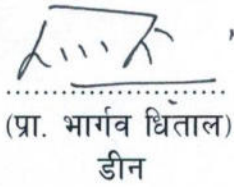 (प्रा. भार्गव धिताल)
डीन